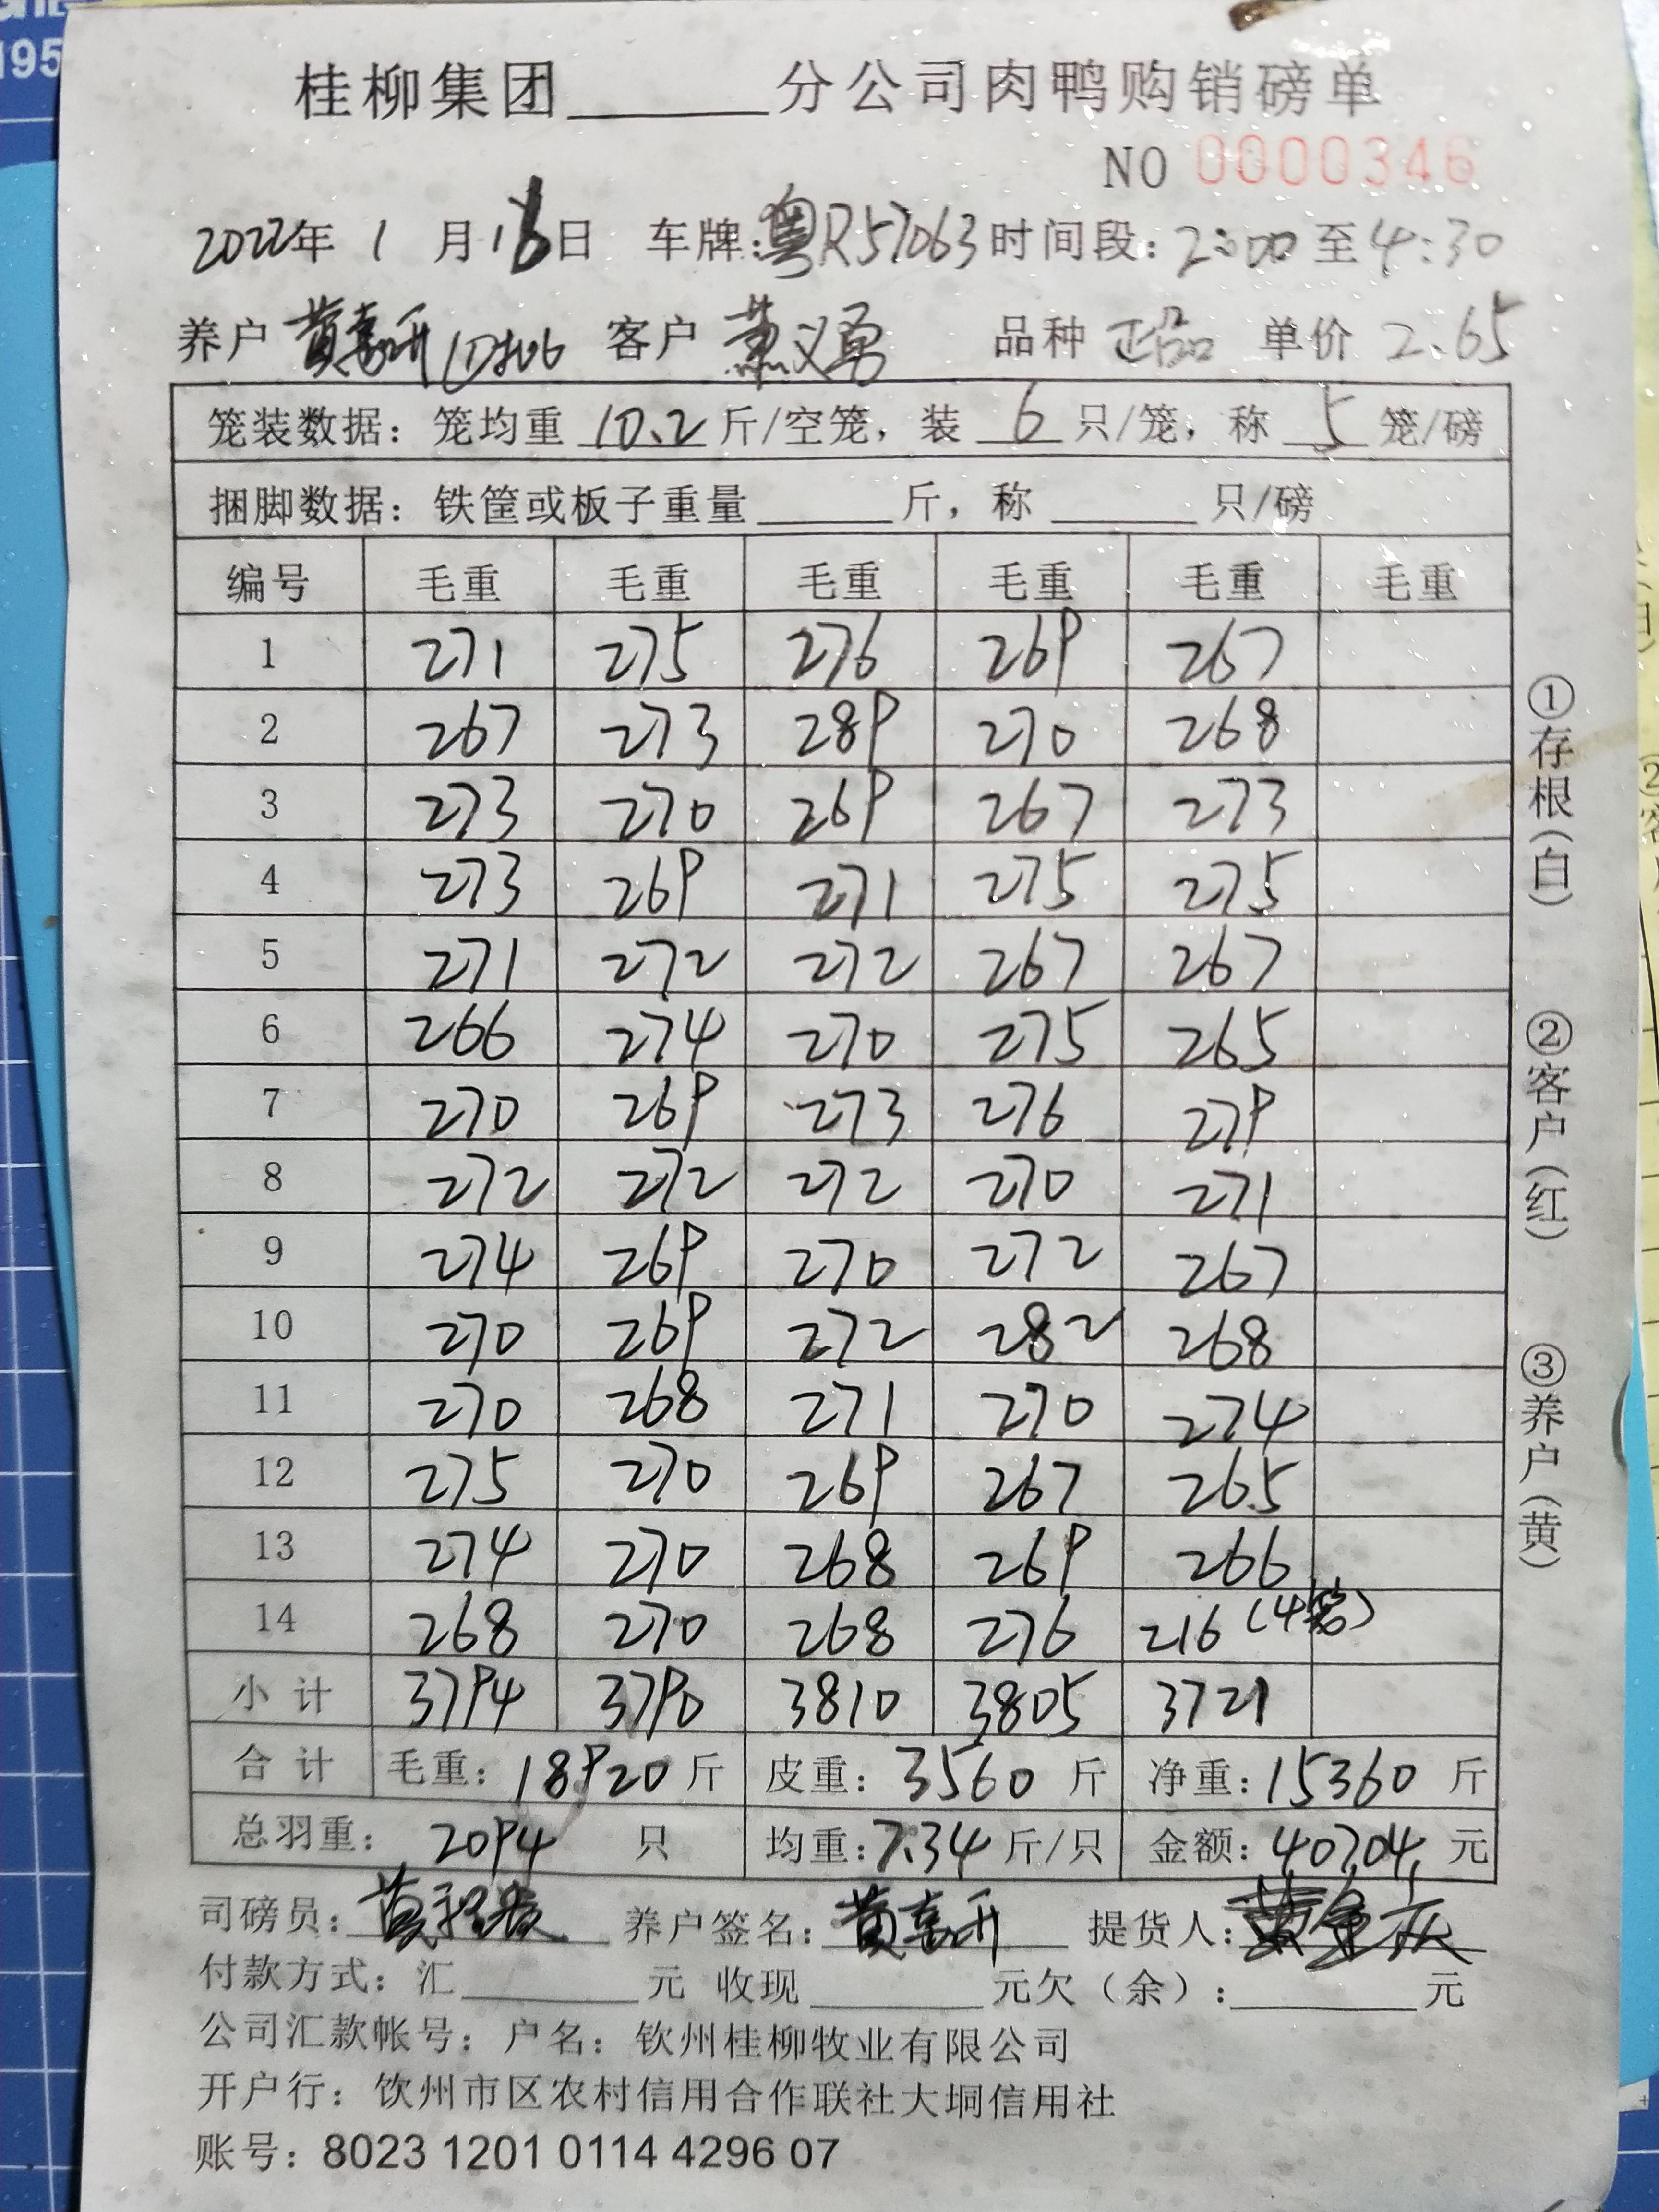 195
桂柳集团______分公司肉鸭购销磅单
NO 0000346
2022年 1 月16日 车牌:粤R57063 时间段:2:00 至4:30
养户 黄喜研 客户 萧义勇 品种 正品 单价 2.65
笼装数据: 笼均重 10.2 斤/空笼, 装 6 只/笼, 称 5 笼/磅
捆脚数据: 铁筐或板子重量______斤, 称______只/磅
编号 毛重 毛重 毛重 毛重 毛重 毛重
1 271 275 276 269 267
2 267 273 289 270 268
3 273 270 269 267 273
4 273 269 271 275 275
5 271 272 272 267 267
6 266 274 270 275 265
7 270 269 273 276 279
8 272 272 272 270 271
9 274 269 270 272 267
10 270 269 272 282 268
11 270 268 271 270 274
12 275 270 269 267 265
13 274 270 268 269 266
14 268 270 268 276 216 (4笼)
小计 3794 3790 3810 3805 3721
合计 毛重: 18920 斤 皮重: 3560 斤 净重: 15360 斤
总羽重: 2094 只 均重: 7.34 斤/只 金额: 40704 元
司磅员: 养户签名: 提货人:
付款方式: 汇______元 收现______元欠(余):______元
公司汇款帐号: 户名: 钦州桂柳牧业有限公司
开户行: 饮州市区农村信用合作联社大垌信用社
账号: 8023 1201 0114 4296 07
①存根(白) ②客户(红) ③养户(黄)